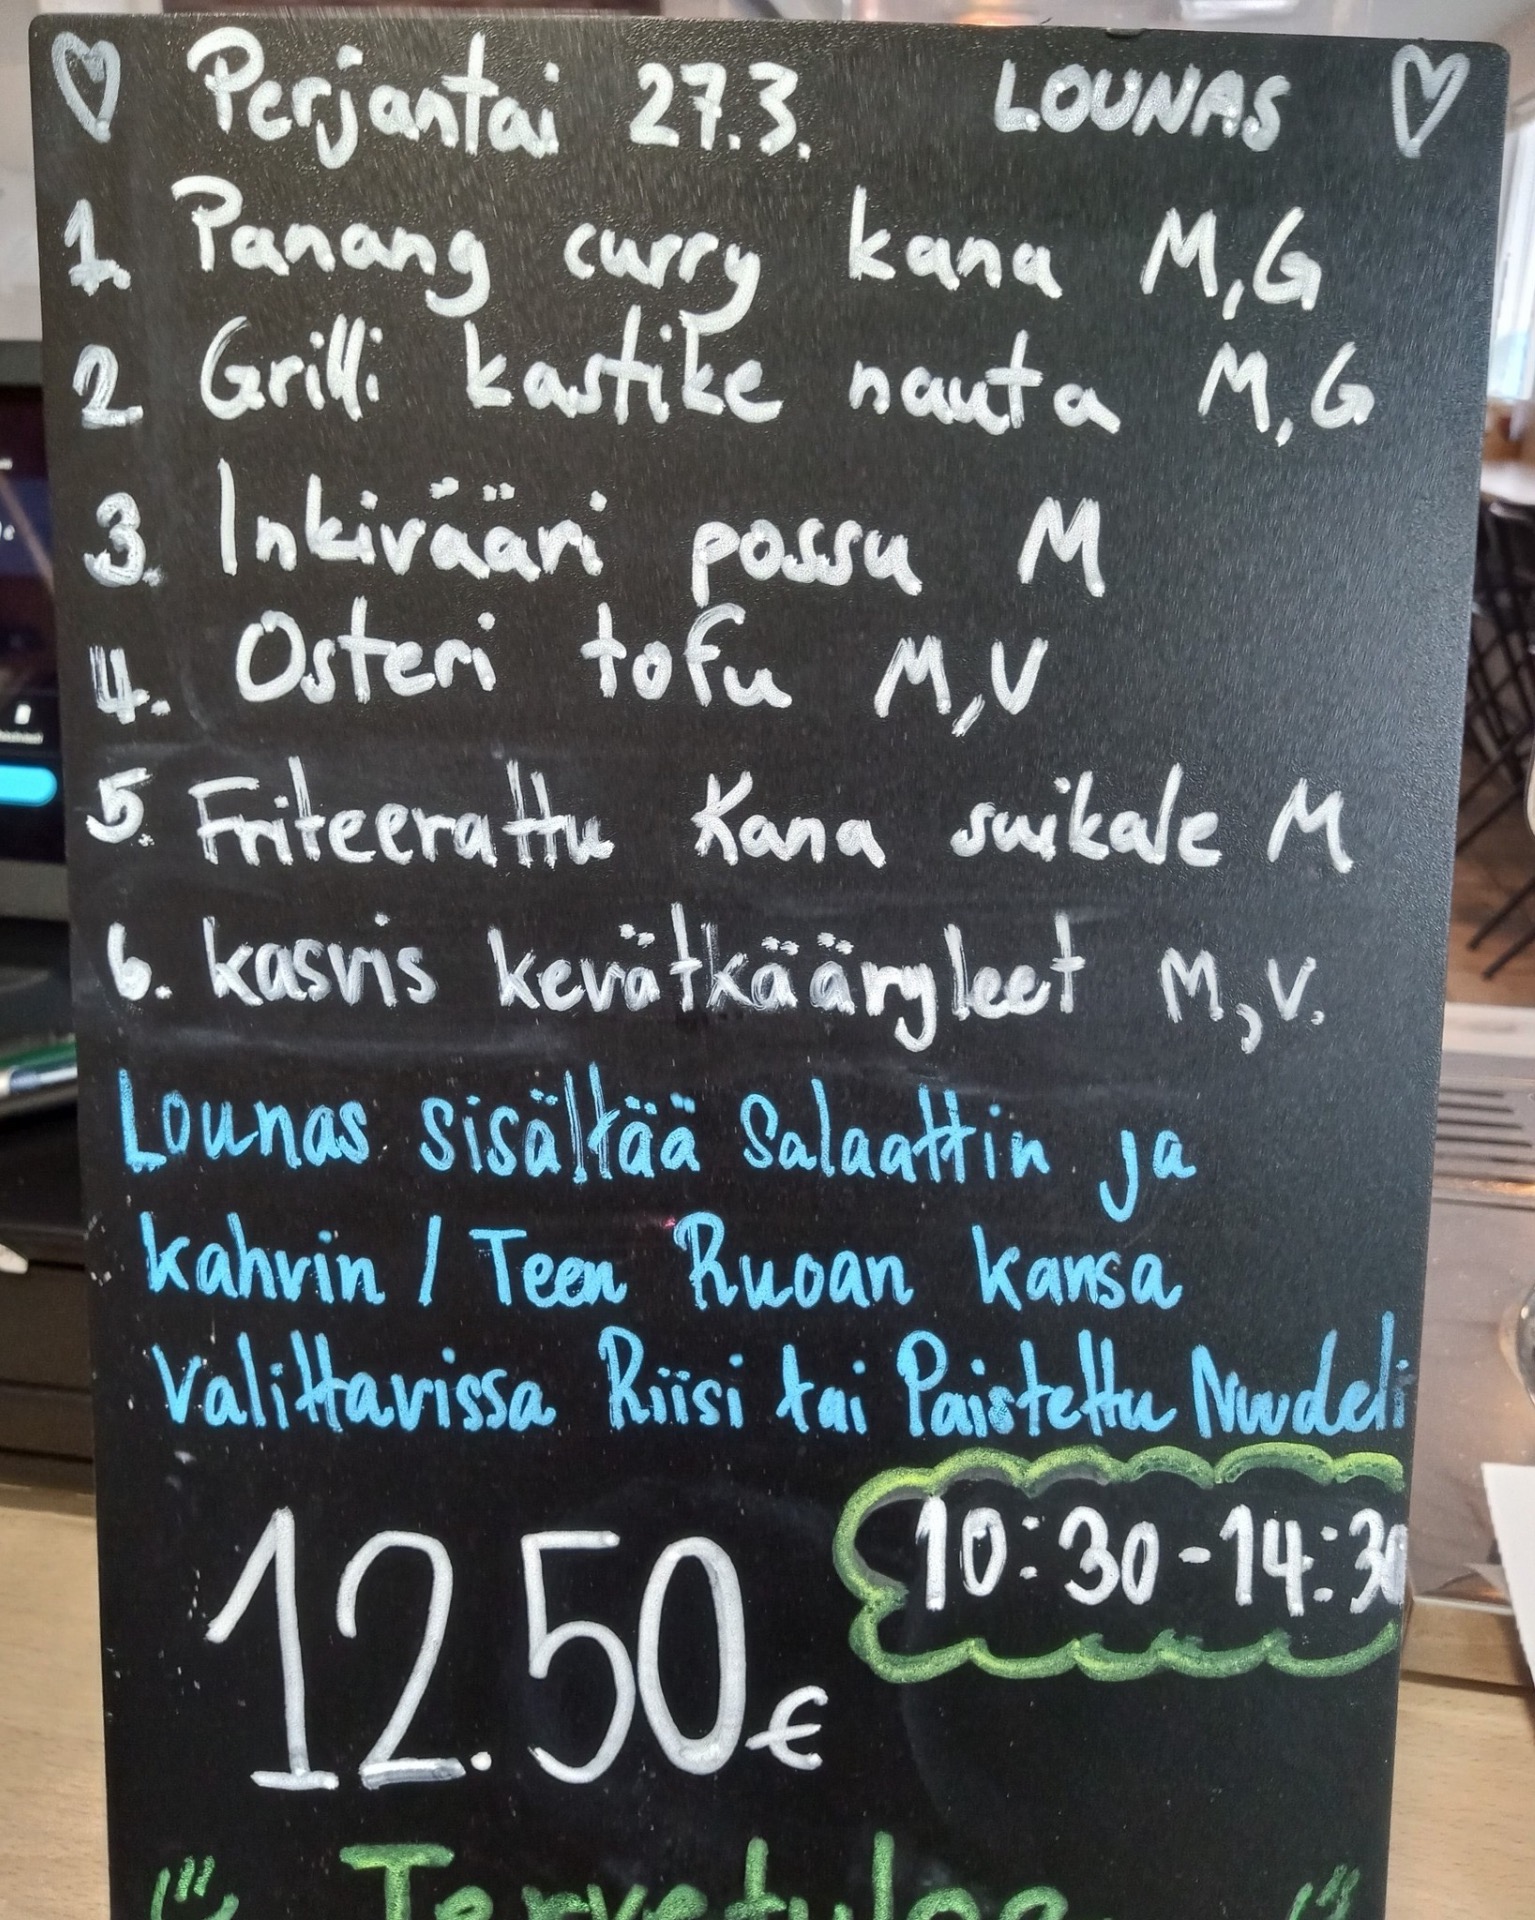 Perjantai 27.3. LOUNAS
1. Panang curry kana M,G
2 Grilli kastike nauta M,G
3. Inkivääri possu M
4. Osteri tofu M,V
5. Friteerattu Kana suikale M
6. kasvis kevätkääryleet M,V.
Lounas sisältää Salaattin ja
kahvin / Teen Ruoan kansa
Valittavissa Riisi tai Paistettu Nuudeli
10:30-14:30
12.50€
Tervetuloa